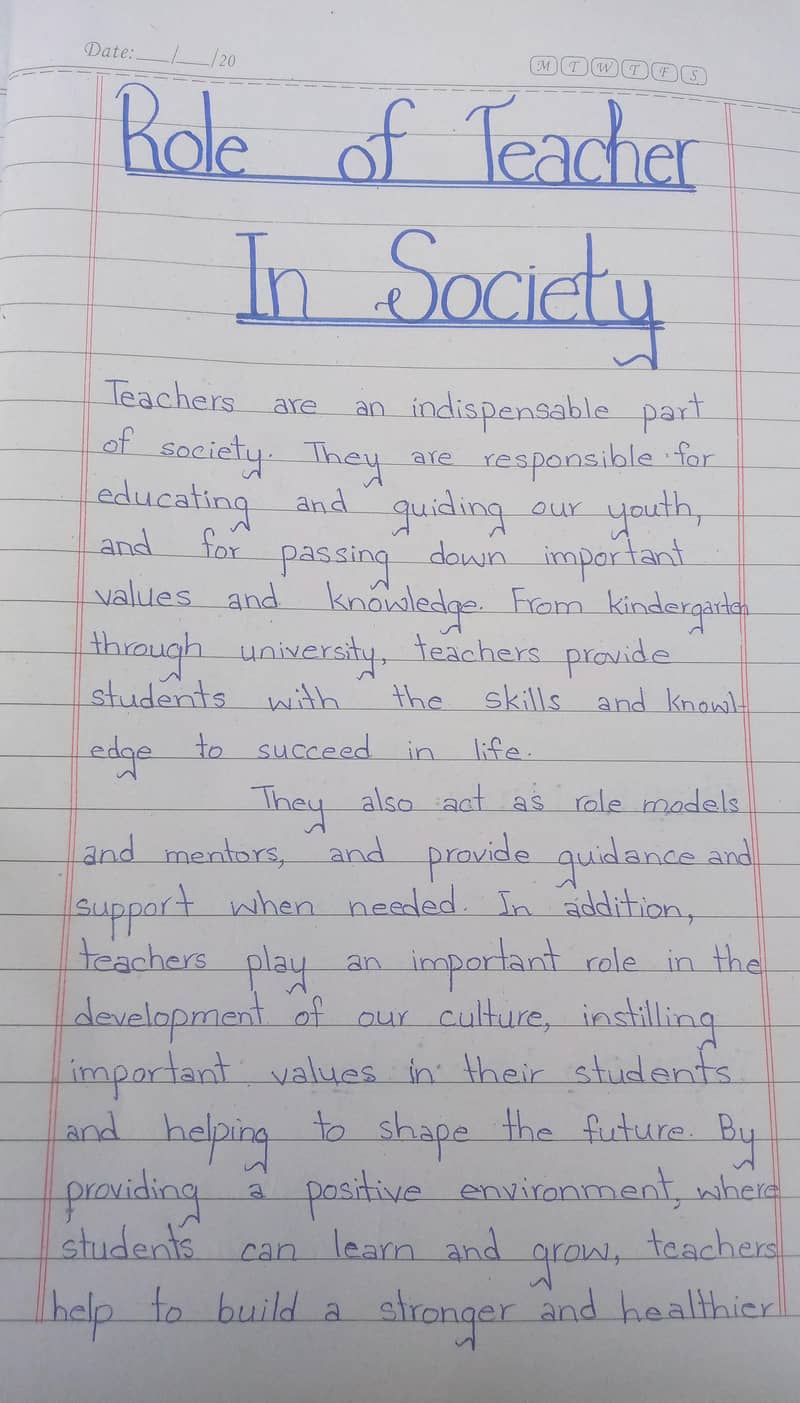 Date:___/___/20
M T W T F S
Role of Teacher
In Society
Teachers are an indispensable part
of society. They are responsible for
educating and guiding our youth,
and for passing down important
values and knowledge. From kindergarten
through university, teachers provide
students with the skills and knowl-
edge to succeed in life.
They also act as role models
and mentors, and provide guidance and
support when needed. In addition,
teachers play an important role in the
development of our culture, instilling
important values in their students
and helping to shape the future. By
providing a positive environment, where
students can learn and grow, teachers
help to build a stronger and healthier